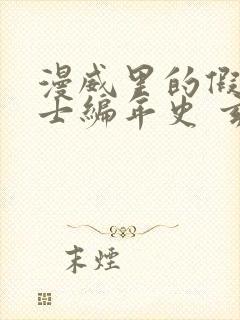 漫威里的假
士编年史
末煙